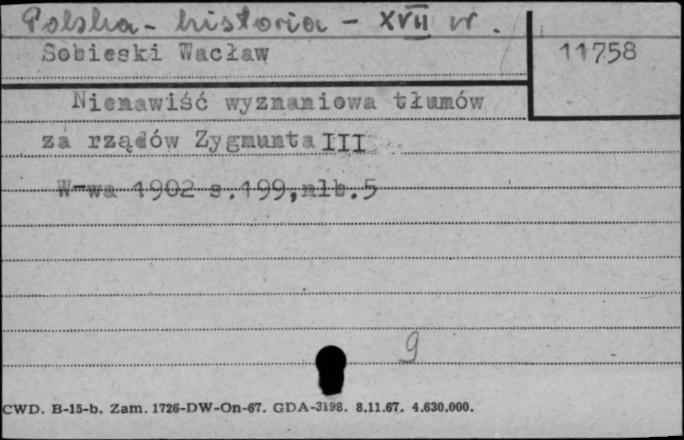 Polska - historia - XVII w.
Sobieski Wacław
11758
Nienawiść wyznaniowa tłumów
za rządów Zygmunta III
W-wa 1902 s.199,nlb.5
9
CWD. B-15-b. Zam. 1726-DW-On-67. GDA-3198. 8.11.67. 4.630.000.